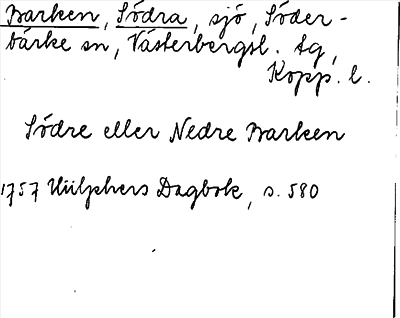 Barken, Södra, sjö, Söder-
bärke sn, Västerbergsl. tg,
Kopp. l.
Södre eller Nedre Barken
1757 Hülphers Dagbok, s. 580